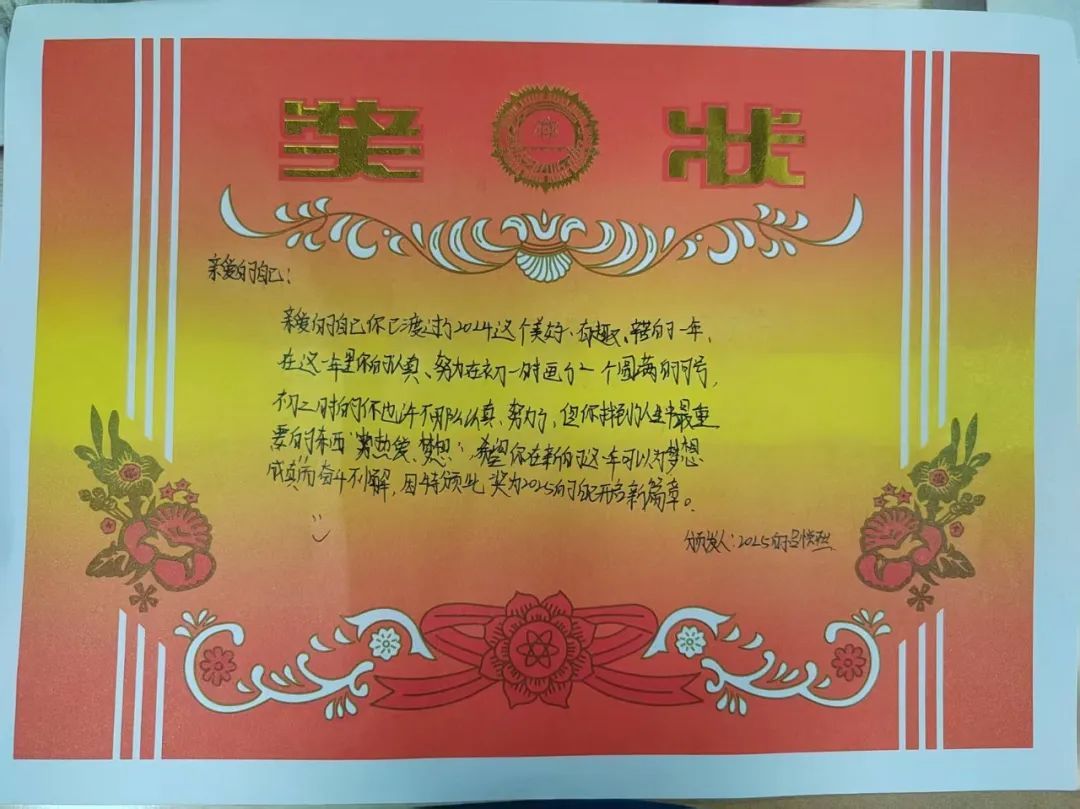 奖状
亲爱的自己:
亲爱的自己你已渡过了2024这个美好、有趣、的一年,
在这一年里你的认真、努力在初一时画了一个圆满的句号,
初二时的你也许不那么认真、努力了,但你找到了人生中最重
要的东西“热爱、梦想”,希望你在新的这一年可以为梦想
成真而奋斗不懈,因特颁此奖为2025的开启新篇章。
颁发人:2025的